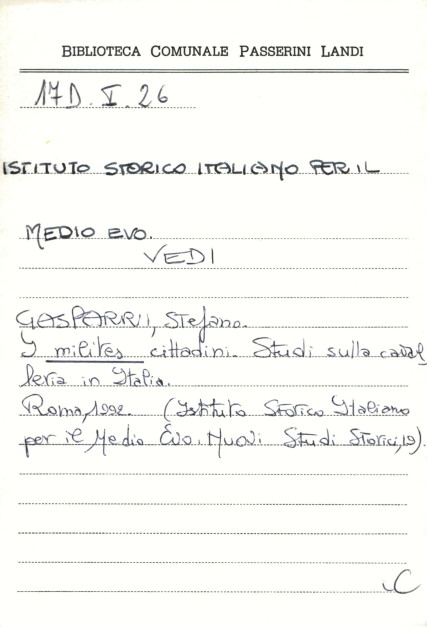 BIBLIOTECA COMUNALE PASSERINI LANDI
17D. V. 26
ISTITUTO STORICO ITALIANO PER IL
MEDIO EVO.
VEDI
GASPARRI, Stefano.
I milites cittadini. Studi sulla caval
leria in Italia.
Roma, 1992. (Istituto Storico Italiano
per il Medio Evo. Nuovi Studi Storici, 19).
C